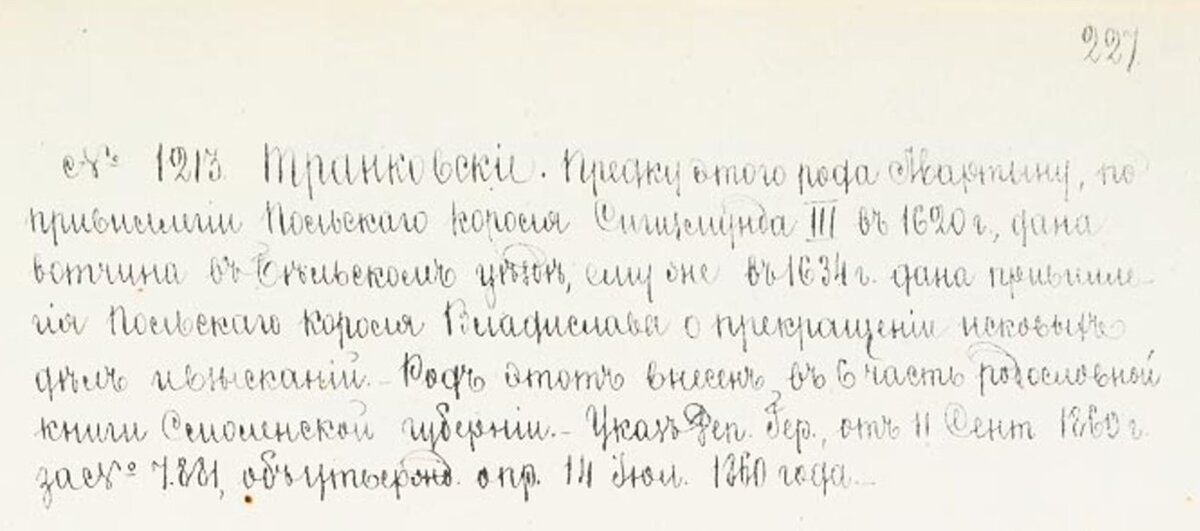 227
№ 1213. Транковскіе. Предку этого рода Мартыну, по
привиллегіи Польскаго короля Сигизмунда III въ 1620 г., дана
вотчина въ Бѣльскомъ уѣздѣ, ему же въ 1634 г. дана привилле-
гія Польскаго короля Владислава о прекращеніи исковыхъ
дѣлъ и взысканій. – Родъ этотъ внесенъ въ 6 часть родословной
книги Смоленской губерніи. – Указъ Деп. Гер., отъ 11 Сент 1860 г.
за № 7.881, объ утвержд. опр. 14 Іюл. 1860 года. –